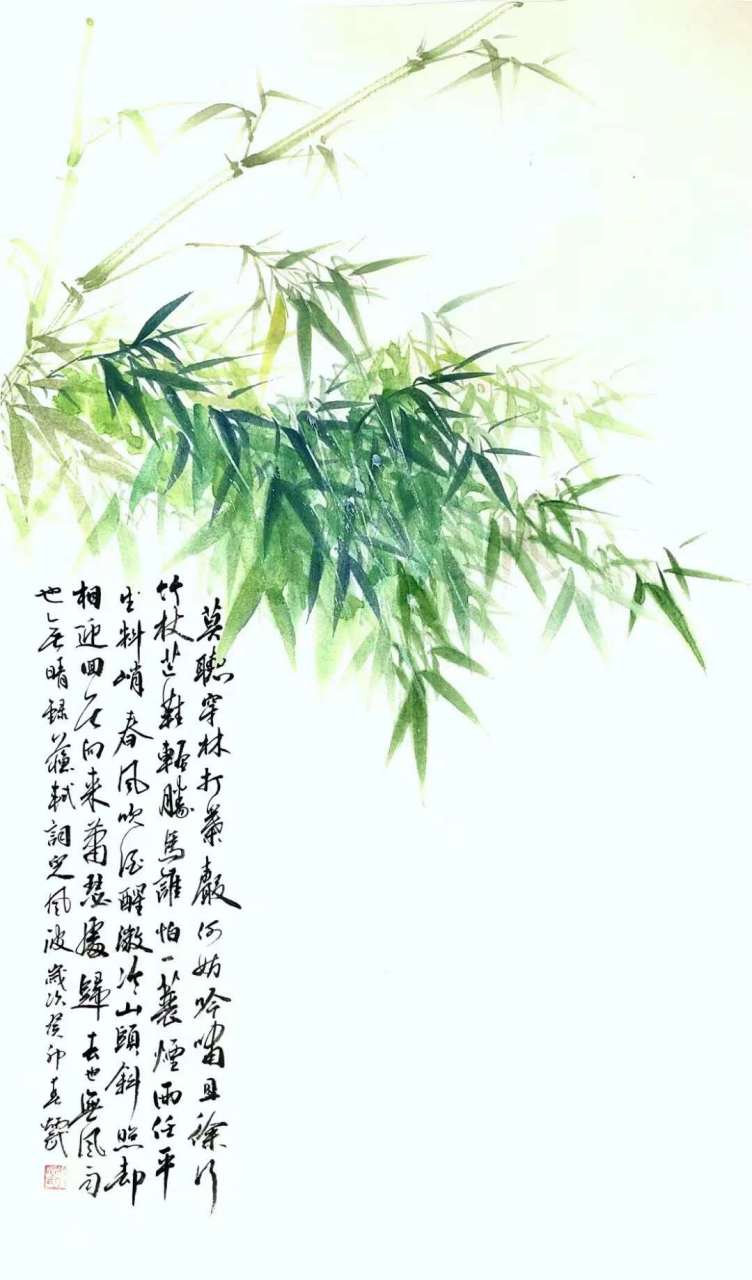 莫聽穿林打葉聲何妨吟嘯且徐行
竹杖芒鞋輕勝馬誰怕一蓑煙雨任平
生料峭春風吹酒醒微冷山頭斜照却
相迎回首向来蕭瑟處歸去也無風雨
也无晴錄蘇軾詞定風波歲次癸卯春